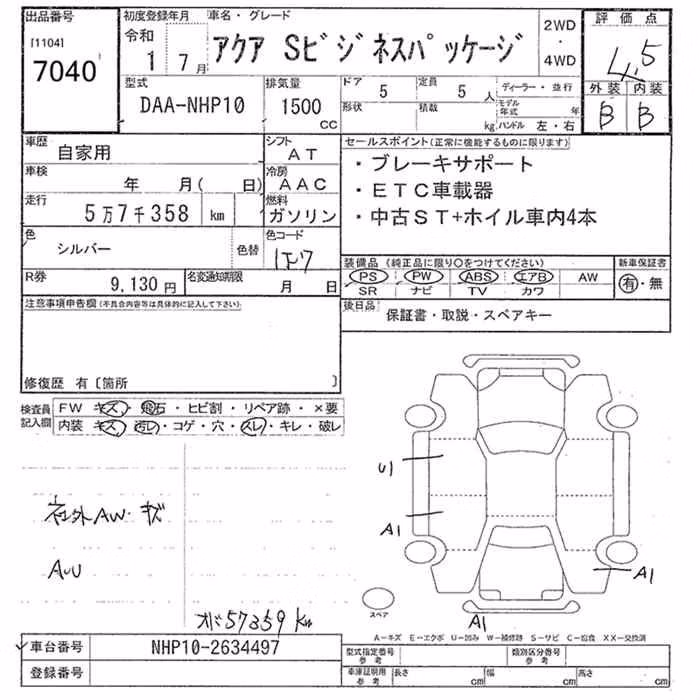 出品番号 初度登録年月 車名・グレード 2WD ・ 4WD 評価点
[1104] 令和
7040 1 7月 アクア Sビジネスパッケージ 4.5
型式 排気量 ドア 定員 ディーラー・並行 外装 内装
DAA-NHP10 1500 CC 5 5人 B B
形状 積載 kg モデル年式 年
ハンドル 左・右
車歴 自家用 シフト AT
車検 年 月( 日) 冷房 AAC
走行 5万7千358 km 燃料 ガソリン
色 シルバー 色替 色コード 1F7
R券 9,130円 名変通知期限 月 日
セールスポイント(正常に機能するものに限ります)
・ブレーキサポート
・ETC車載器
・中古ST+ホイル車内4本
装備品(純正品に限り○をつけてください) 新車保証書
PS PW ABS エアB AW 有・無
SR ナビ TV カワ
後日品 保証書・取説・スペアキー
注意事項申告欄(不具合内容等は具体的に記入して下さい)
修復歴 有〔箇所 〕
検査員記入欄 FW キズ・飛石・ヒビ割・リペア跡・×要
内装 キズ・汚レ・コゲ・穴・スレ・キレ・破レ
社外AW・キズ
AUU
オドメ57359km
U1
A1
A1
A1
スペア
A-キズ E-エクボ U-凹み W-補修跡 S-サビ C-腐食 XX-交換済
車台番号 NHP10-2634497
登録番号
型式指定番号 参考 類別区分番号 参考
車庫証明用 参考 長さ cm 幅 cm 高さ cm